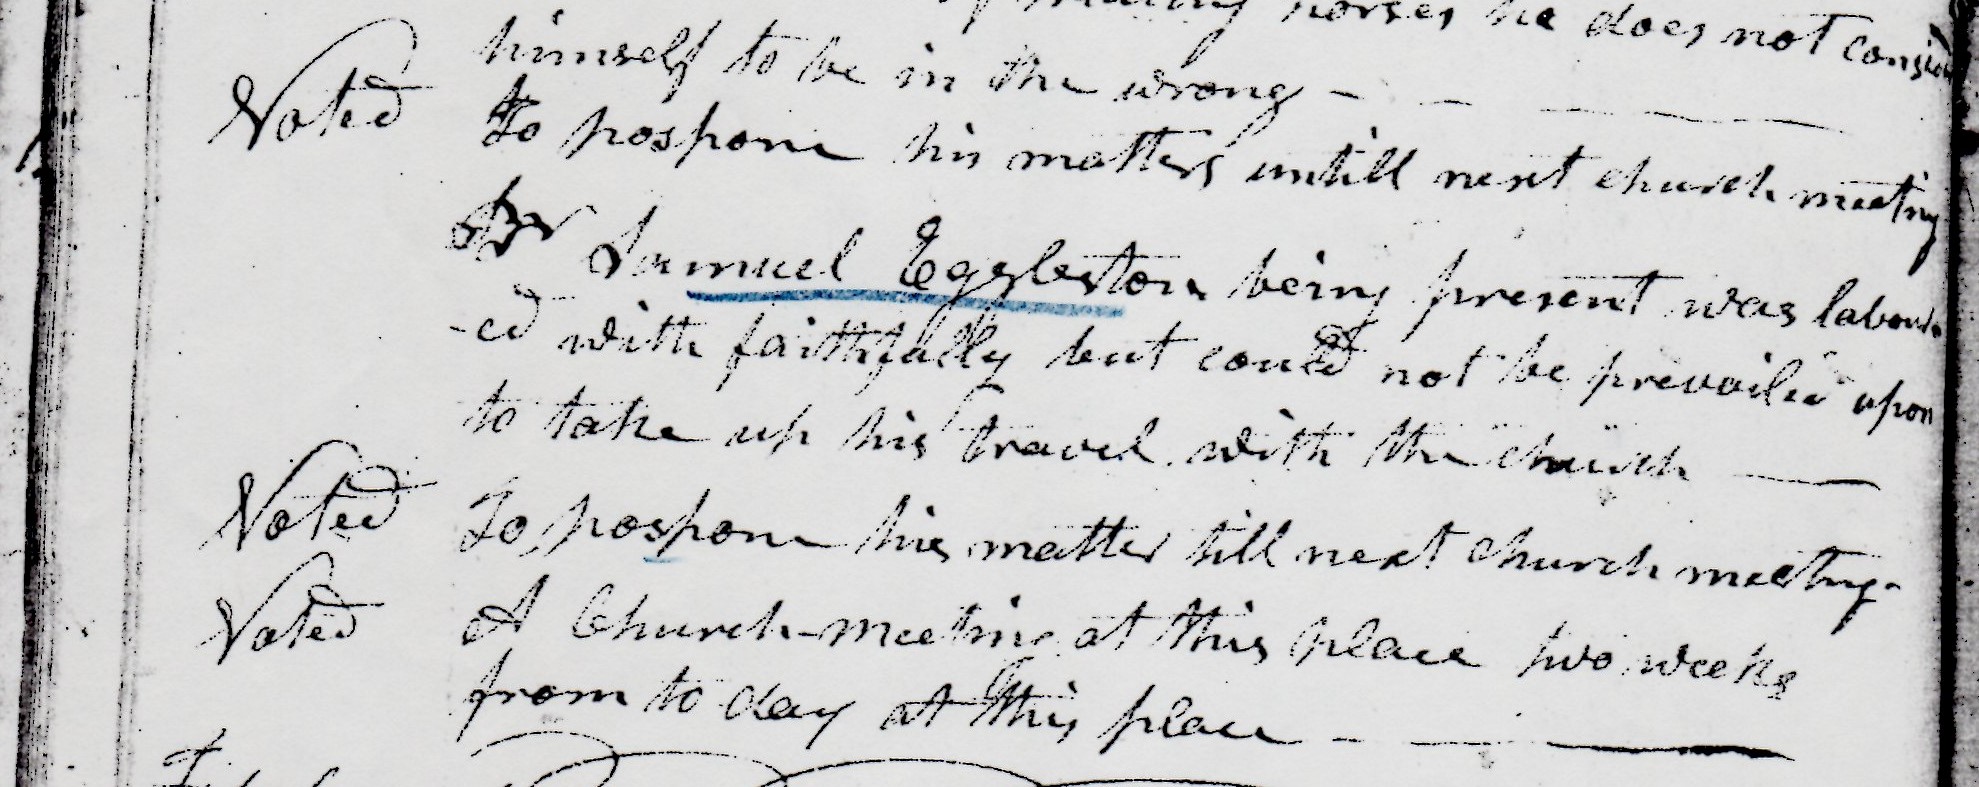 horses he does not consid
himself to be in the wrong - - —
Voted To pospone his matters untill next church meeting
Br Samuel Eggleston being present was labour
-ed with faithfully but could not be prevailed upon
to take up his travel with the church —
Voted To pospone his matter till next church meeting-
Voted A Church-meeting at this place two weeks
from to day at this place - - —